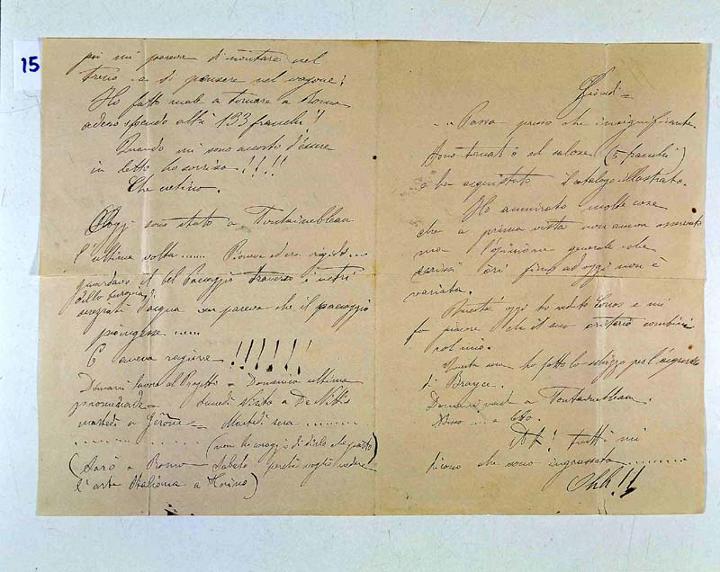 15
poi mi pareva di montare nel
treno e di pensare nel vagone!
Ho fatto male a tornare a Roma
adesso spendo altri 133 franchi!
Quando mi sono accorto d'essere
in letto ho sorriso!!!!
Che cretino.
Oggi sono stato a Fontainebleau
l'ultima volta...... Pioveva ed era rigido...
guardavo il bel paesaggio traverso i vetri
segnati d'acqua mi pareva che il paesaggio
piangesse.....
E aveva ragione !!!!!!!
Domani lavoro al Progetto - Domenica ultima
Lunedì visito a De Nittis
martedì a Gérôme - Martedì sera.......
(non ho coraggio di dirlo che parto)
(Sarò a Roma - Sabato perché voglio vedere
l'arte Italiana a Torino)
Giovedì =
... Passa preso che insignificante.
Sono tornato al salone (5 franchi)
e ho acquistato il catalogo illustrato.
Ho ammirato molte cose
che a prima vista non aveva osservato
ma l'opinione generale che
scrissi fino ad oggi non è
variata.
Anche oggi ho veduto e mi
fa piacere che il suo criterio combini
col mio.
Questa sera ho fatto lo schizzo per l'
di
Domani vado a Fontainebleau.
Ah! tutti mi
dicono che sono ingrassato..........
Ohh!!